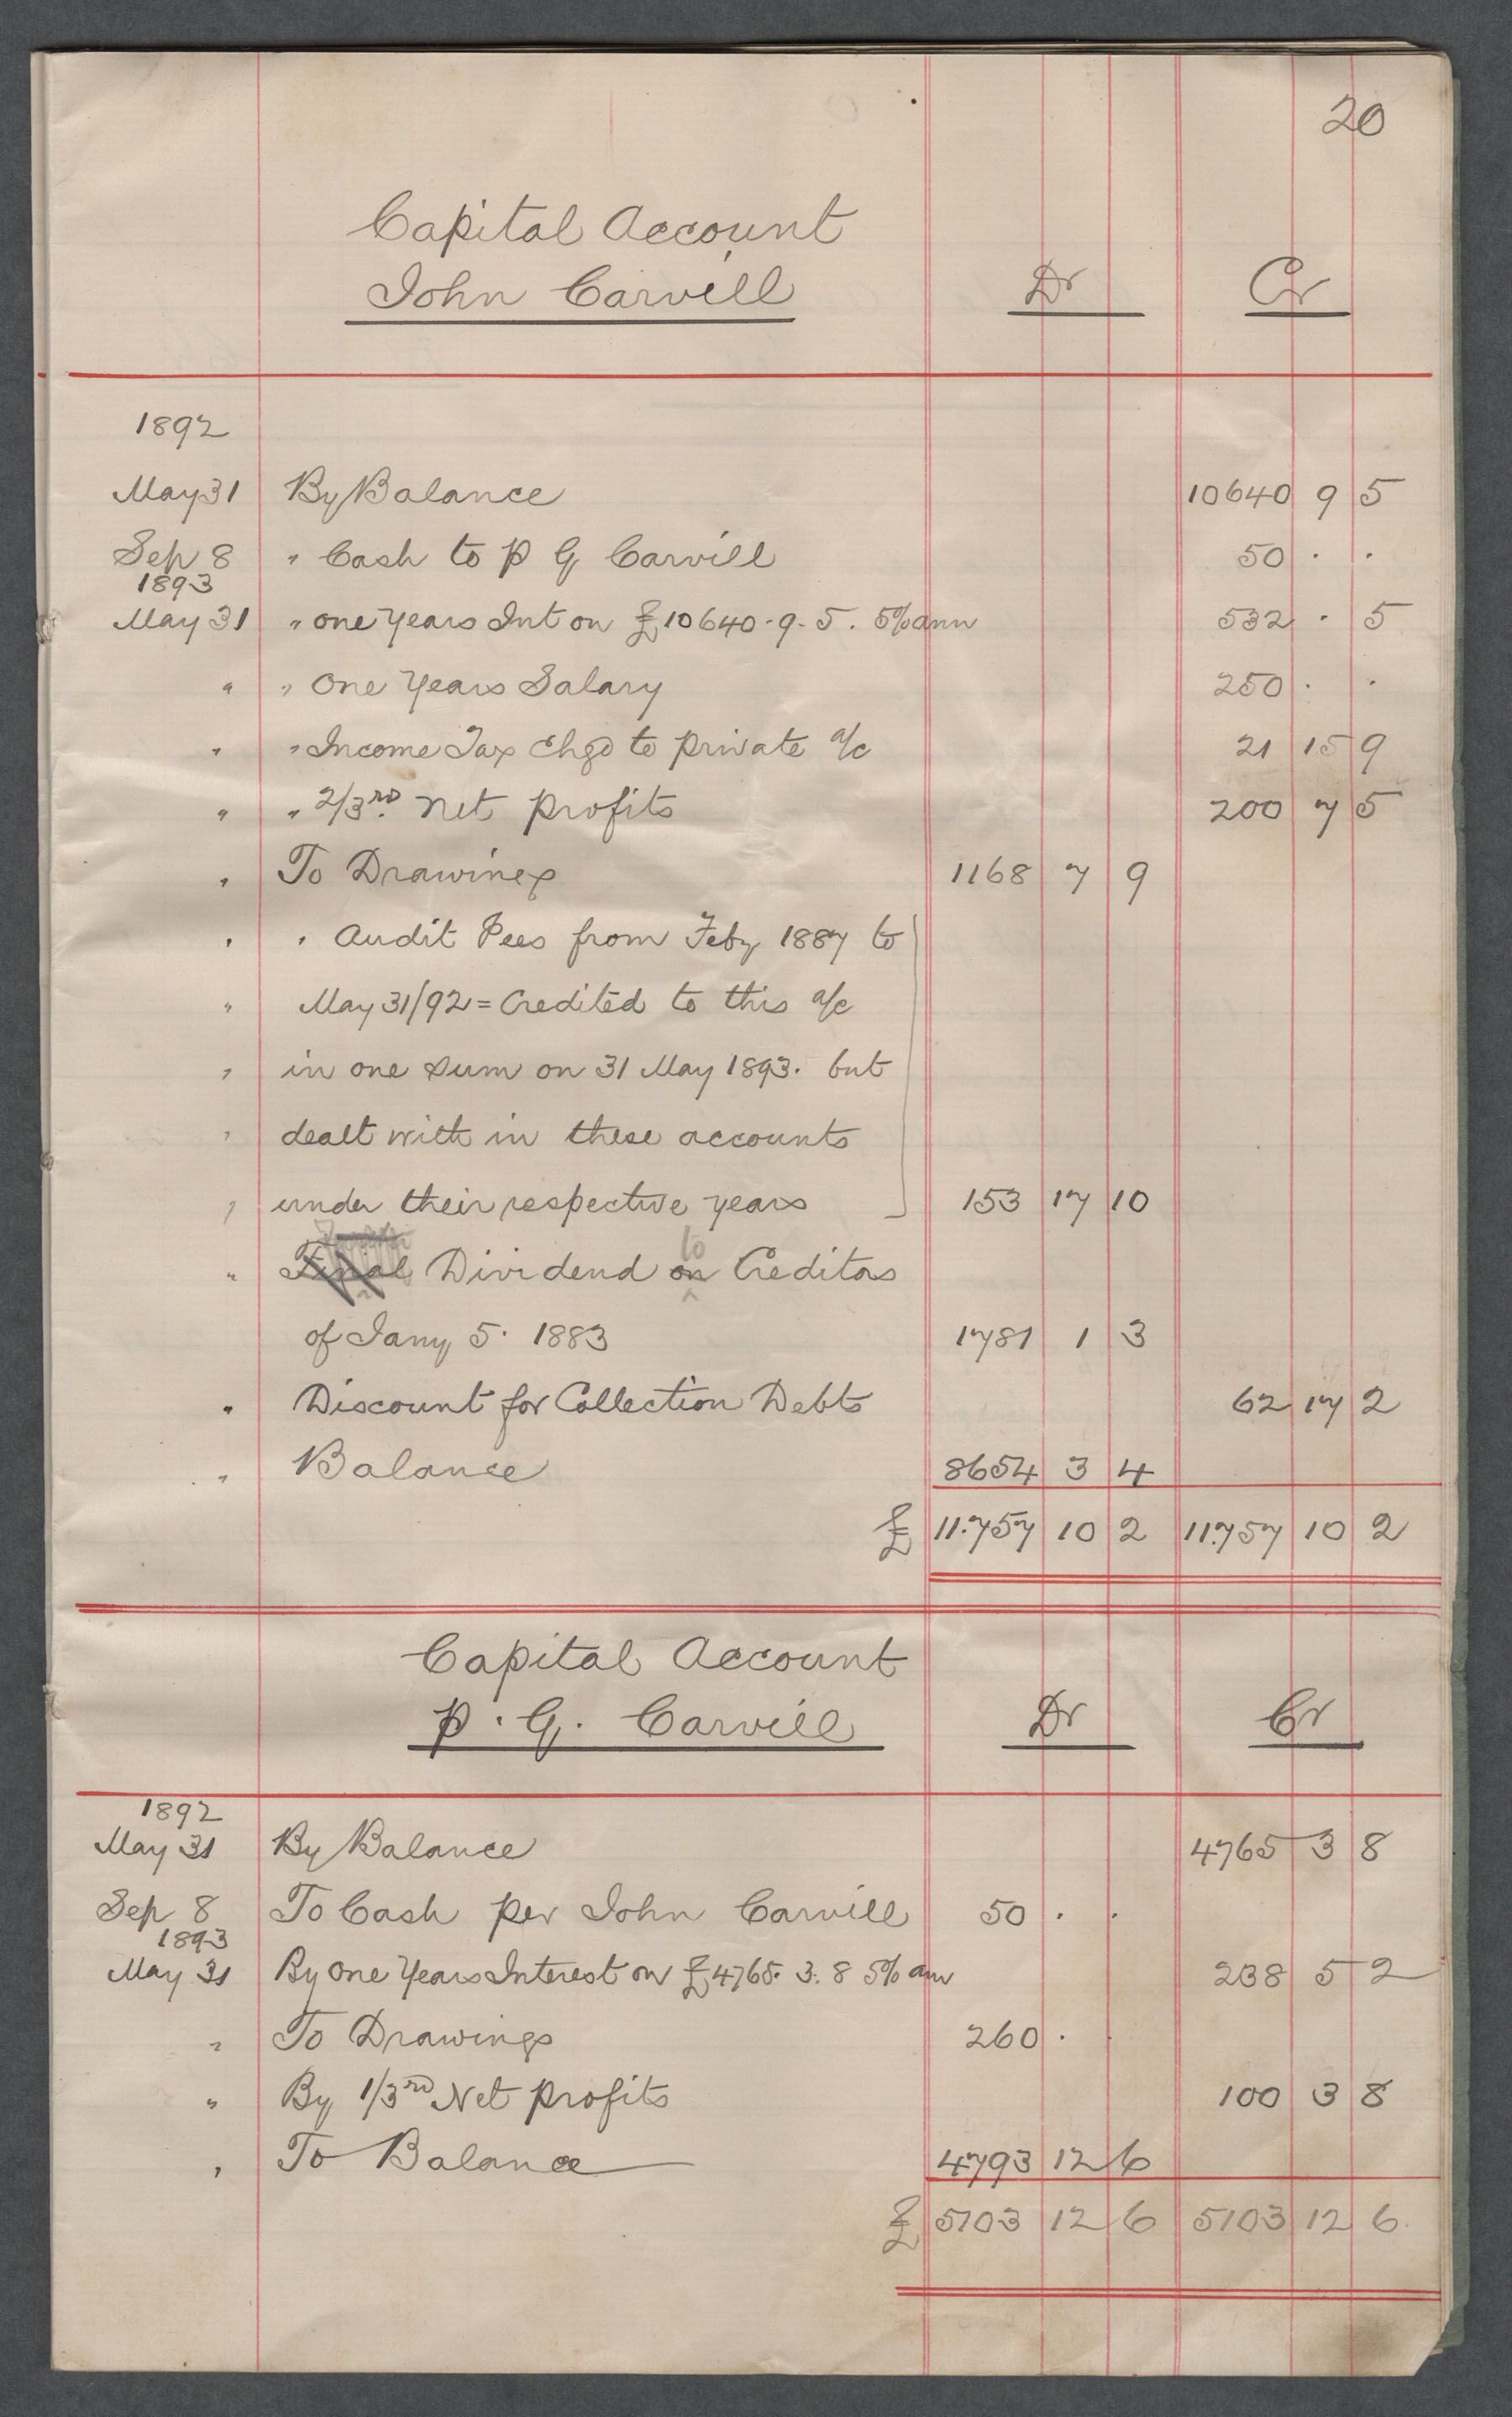 20
Capital Account
John Carvill Dr Cr
1892
May 31 By Balance 10640 9 5
Sep 8 " Cash to P G Carvill 50 . .
1893
May 31 " one Years Int on £10640.9.5. 5% ann 532 . 5
" " One Years Salary 250 . .
" " Income Tax Chgd to private a/c 21 15 9
" " 2/3rd. Net profits 200 7 5
" To Drawings 1168 7 9
" " Audit Fees from Feby 1887 to
" May 31/92 = Credited to this a/c
" in one sum on 31 May 1893. but
" dealt with in these accounts
" under their respective years 153 17 10
" Final Dividend on to Creditors
of Jany 5. 1883 1781 1 3
" Discount for Collection Debts 62 17 2
" Balance 8654 3 4
£ 11.757 10 2 11.757 10 2
Capital Account
P. G. Carvill Dr Cr
1892
May 31 By Balance 4765 3 8
Sep 8 To Cash per John Carvill 50 . .
1893
May 31 By One Years Interest on £4765. 3. 8 5% ann 238 5 2
" To Drawings 260 . .
" By 1/3rd Net profits 100 3 8
" To Balance 4793 12 6
£ 5103 12 6 5103 12 6